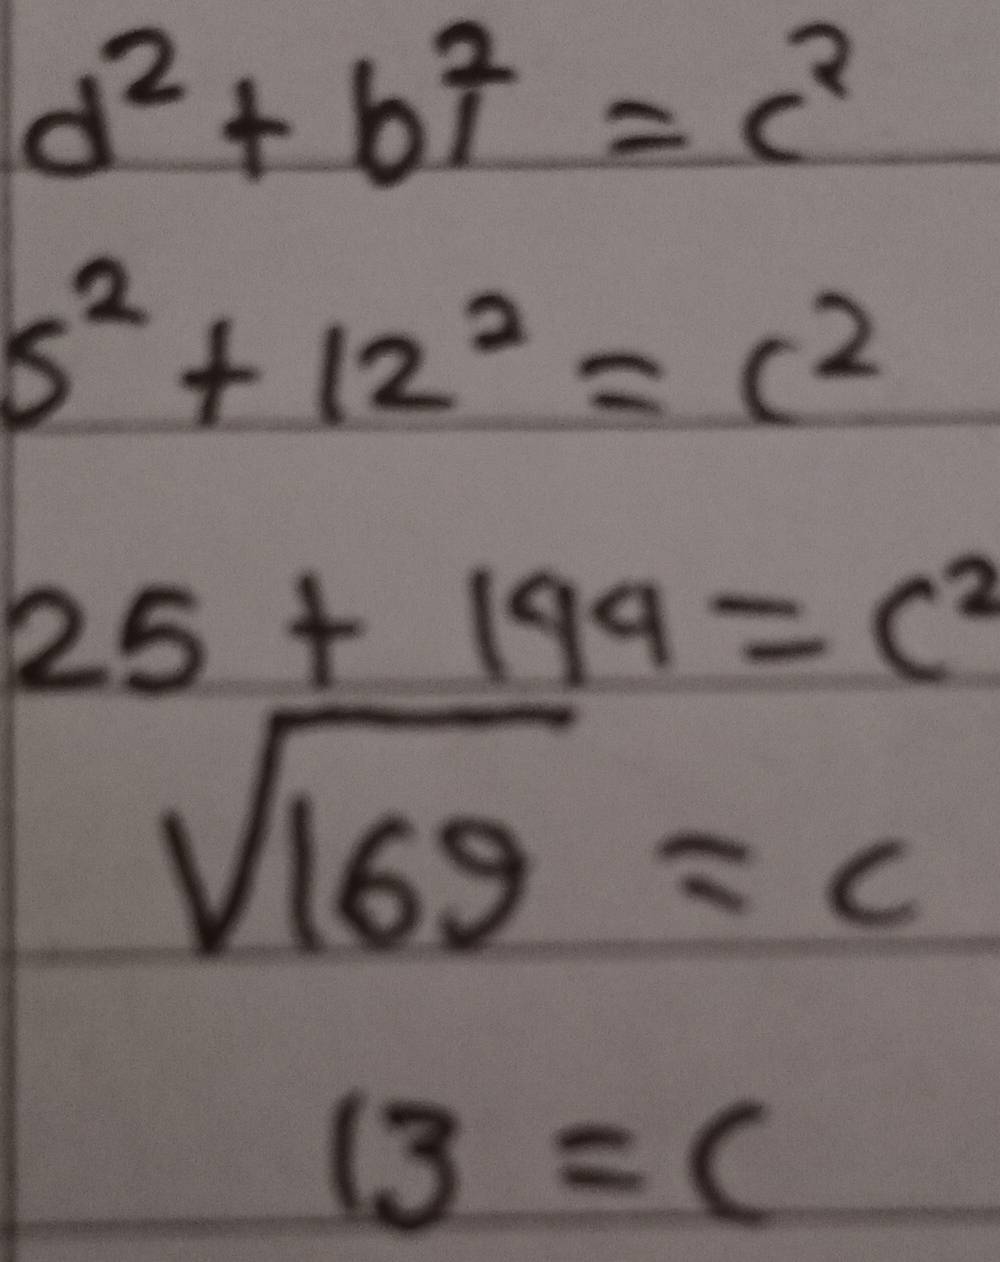 d² + b1² = c²
5² + 12² = c²
25 + 144 = c²
√169 = c
13 = c